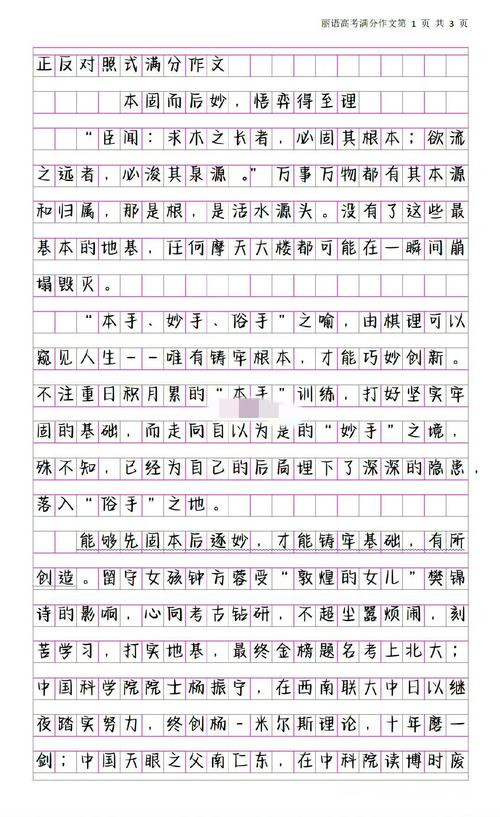 丽语高考满分作文第 1 页 共 3 页
正反对照式满分作文
本固而后妙，悟弈得至理
“臣闻：求木之长者，必固其根本；欲流
之远者，必浚其泉源。”万事万物都有其本源
和归属，那是根，是活水源头。没有了这些最
基本的地基，任何摩天大楼都可能在一瞬间崩
塌毁灭。
“本手、妙手、俗手”之喻，由棋理可以
窥见人生--唯有铸牢根本，才能巧妙创新。
不注重日积月累的“本手”训练，打好坚实牢
固的基础，而走向自以为是的“妙手”之境，
殊不知，已经为自己的后局埋下了深深的隐患，
落入“俗手”之地。
能够先固本后逐妙，才能铸牢基础，有所
创造。留守女孩钟方蓉受“敦煌的女儿”樊锦
诗的影响，心向考古钻研，不超尘嚣烦闹，刻
苦学习，打实地基，最终金榜题名考上北大；
中国科学院院士杨振宁，在西南联大中日以继
夜踏实努力，终创杨-米尔斯理论，十年磨一
剑；中国天眼之父南仁东，在中科院读博时废